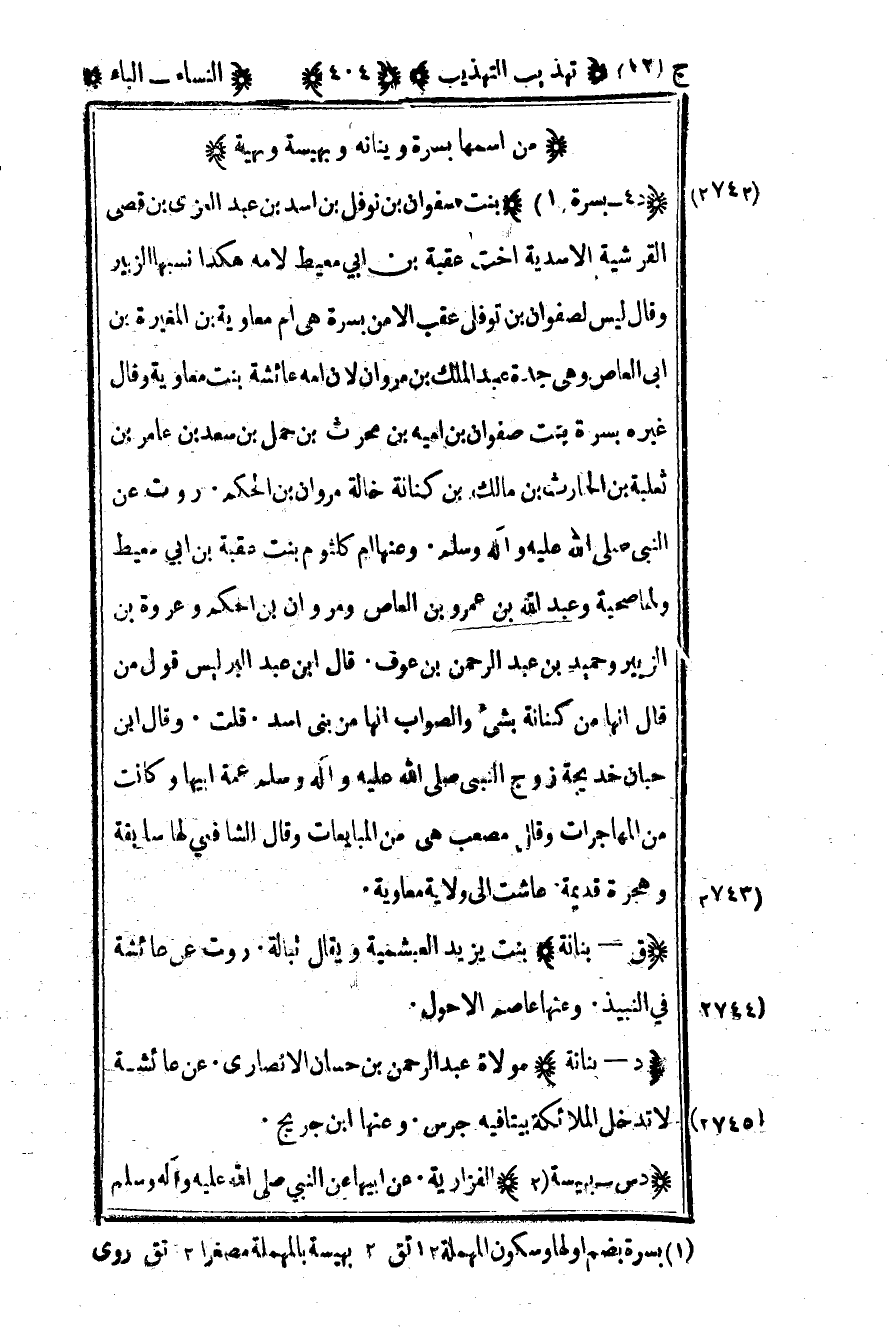 ج (١٢) ﴿ تهذيب التهذيب ﴾ ﴿ ٤٠٤ ﴾ ﴿ النساء ــ الباء ﴾
﴿ من اسمها بسرة وبنانه وبهيسة وبهية ﴾
(٢٧٤٢) ﴿ د٤ ــ بسرة (١) ﴾ بنت صفوان بن نوفل بن اسد بن عبد العزى بن قصى
القرشية الاسدية اخت عقبة بن ابي معيط لامه هكذا نسبها الزبير
وقال ليس لصفوان بن نوفل عقب الا من بسرة هى ام معاوية بن المغيرة بن
ابى العاص وهى جدة عبد الملك بن مروان لان امه عائشة بنت معاوية وقال
غيره بسرة بنت صفوان بن اميه بن محرث بن حمل بن سعد بن عامر بن
ثعلبة بن الحارث بن مالك بن كنانة خالة مروان بن الحكم · روت عن
النبي صلى الله عليه وآله وسلم · وعنها ام كلثوم بنت عقبة بن ابي معيط
ولها صحبة وعبد الله بن عمرو بن العاص ومروان بن الحكم وعروة بن
الزبير وحميد بن عبد الرحمن بن عوف · قال ابن عبد البر ليس قول من
قال انها من كنانة بشئ والصواب انها من بنى اسد · قلت · وقال ابن
حبان خديجة زوج النبي صلى الله عليه وآله وسلم عمة ابيها وكانت
من المهاجرات وقال مصعب هى من المبايعات وقال الشافعي لها سابقة
وهجرة قديمة · عاشت الى ولاية معاوية ·
(٢٧٤٣) ﴿ ق ــ بنانة ﴾ بنت يزيد العبشمية ويقال تبالة · روت عن عائشة
في النبيذ · وعنها عاصم الاحول ·
(٢٧٤٤) ﴿ د ــ بنانة ﴾ مولاة عبد الرحمن بن حسان الانصارى · عن عائشة
لا تدخل الملائكة بيتا فيه جرس · وعنها ابن جريج ·
(٢٧٤٥) ﴿ د س ــ بهيسة (٢) ﴾ الفزارية · عن ابيها عن النبي صلى الله عليه وآله وسلم
(١) بسرة بضم اولها وسكون المهملة ١٢ تق ٢ بهيسة بالمهملة مصغرا ٢ تق روى